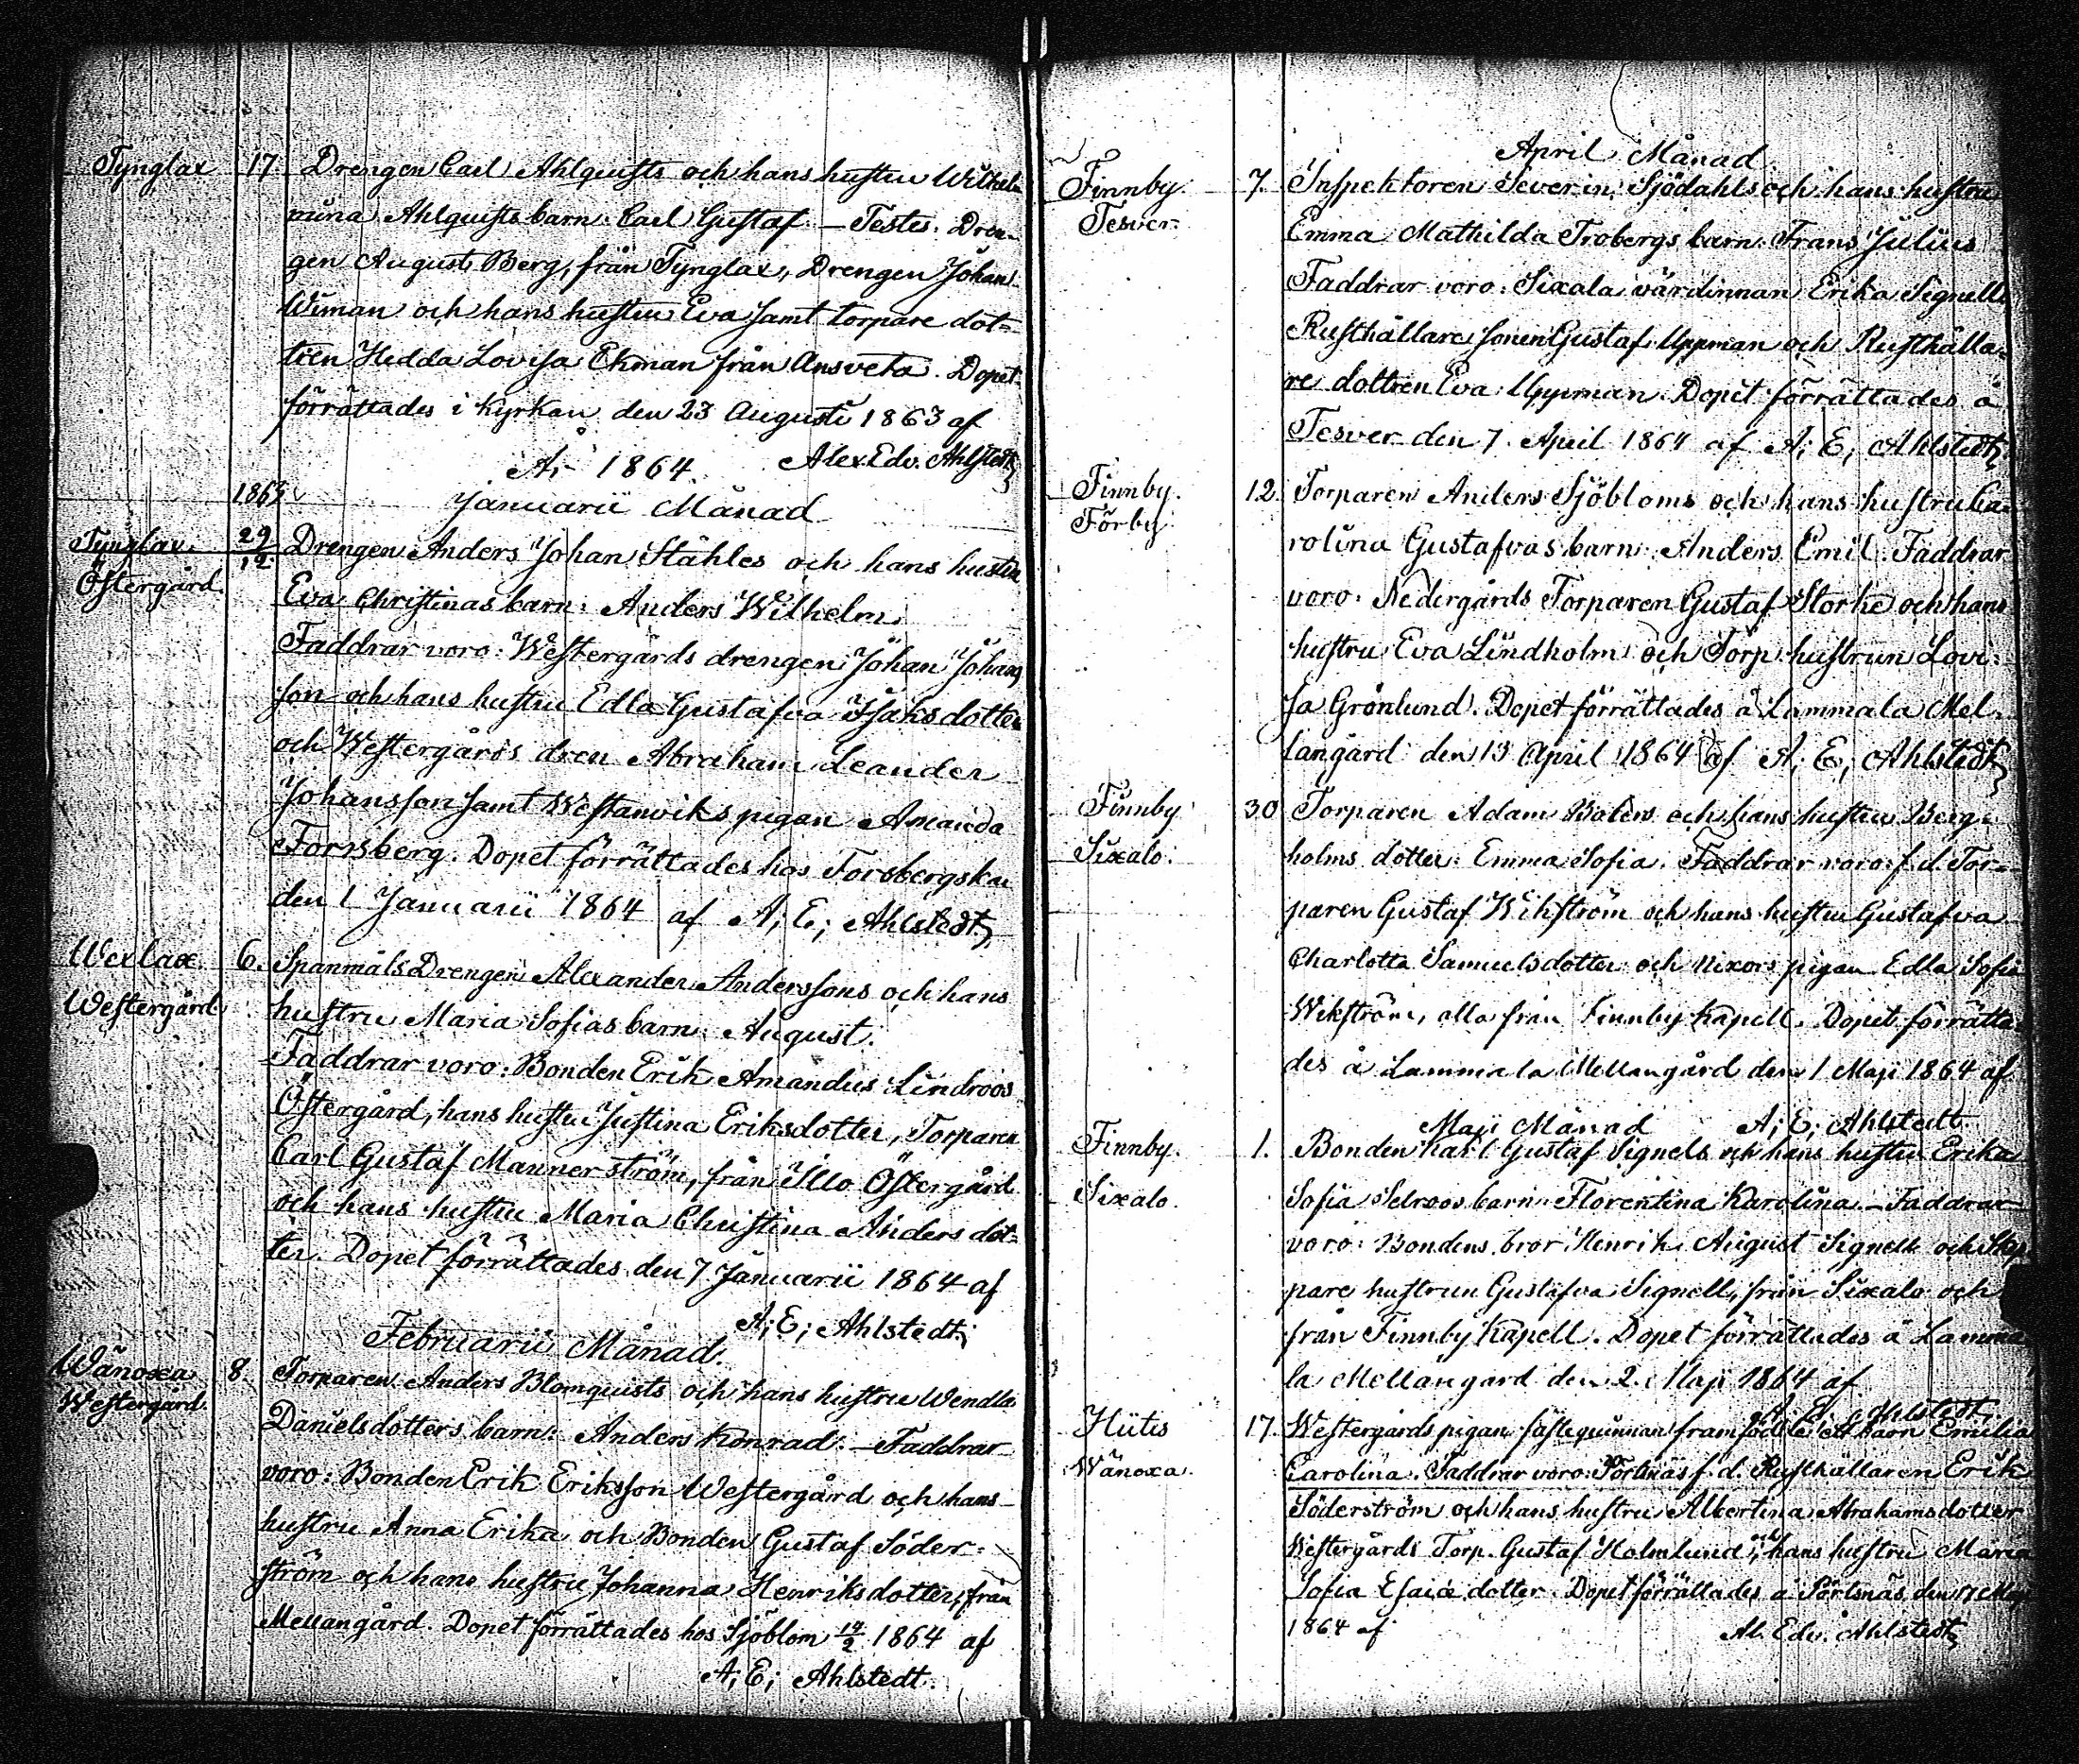 Tynglax 17. Drengen Carl Ahlquists och hans hustru Wilhel-
mina Ahlquists barn: Carl Gustaf. — Testes: Dren-
gen August Berg, från Tynglax, Drengen Johan
Wiman och hans hustru Eva samt torpare dot-
tren Hedda Lovisa Ekman från Ansveta. Dopet
förrättades i Kyrkan den 23 Augusti 1863 af
Alex. Edv. Ahlstedt
År 1864.
1863
Januarii Månad
Tynglax 29/12 Drengen Anders Johan Ståhles och hans hustru
Östergård. Eva Christinas barn: Anders Wilhelm
Faddrar voro: Westergårds drengen Johan Johans-
son och hans hustru Edla Gustafva Isaksdotter
och Westergårds dren Abraham Leander
Johansson samt Westanviks pigan Amanda
Forssberg. Dopet förrättades hos Forsbergska
den 1 Januarii 1864 af A; E; Ahlstedt
Wexlax 6. Spanmåls Drengen Alexander Anderssons och hans
Westergård hustru Maria Sofias barn: August.
Faddrar voro: Bonden Erik Amandus Lindroos
Östergård, hans hustru Justina Eriksdotter, Torparen
Carl Gustaf Mannerström, från Illo Östergård
och hans hustru Maria Christina Anders dot-
ter. Dopet förrättades den 7 Januarii 1864 af
A; E; Ahlstedt;
Februarii Månad.
Wänoxa 8. Torparen Anders Blomquists och hans hustru Wendla
Westergård. Danielsdotters barn: Anders Konrad. — Faddrar
voro: Bonden Erik Eriksson Westergård och hans
hustru Anna Erika och Bonden Gustaf Söder-
ström och hans hustru Johanna Henriksdotter, från
Mellangård. Dopet förrättades hos Sjöblom 14/2 1864 af
A; E; Ahlstedt.
April Månad
Finnby. 7. Inspektoren Severin Sjödahls och hans hustru
Tesver. Emma Mathilda Frobergs barn: Frans Julius
Faddrar voro: Sixala värdinnan Erika Signell,
Rusthållare sonen Gustaf Uppman och Rusthålla-
re dottren Eva Uppman. Dopet förrättades å
Tesver den 7. April 1864 af A; E; Ahlstedt
Finnby. 12. Torparen Anders Sjöbloms och hans hustru Ca-
Förby rolina Gustafvas barn: Anders Emil. Faddrar
voro: Nedergårds Torparen Gustaf Storke och hans
hustru Eva Lindholm och Torp. hustrun Lovi-
sa Grönlund. Dopet förrättades å Lammala Mel-
langård den 13 April 1864 af A; E; Ahlstedt
Finnby 30 Torparen Adam Boléns och hans hustru Berg-
Sixalo. holms dotter: Emma Sofia. Faddrar voro: f. d. Tor-
paren Gustaf Wikström och hans hustru Gustafva
Charlotta Samuelsdotter och Nixors pigan Edla Sofia
Wikström, alla från Finnby Kapell. Dopet förrätta-
des å Lammala Mellangård den 1 Maji 1864 af
Maji Månad A; E; Ahlstedt.
Finnby. 1. Bonden Karl Gustaf Signels och hans hustru Erika
Sixalo. Sofia Selroos barn: Florentina Karolina. — Faddrar
voro: Bondens bror Henrik August Signell och Skep-
pare hustrun Gustafva Signell, från Sixalo och
från Finnby Kapell. Dopet förrättades å Lamma-
la Mellangård den 2. Maji 1864 af
A; E; Ahlstedt,
Hiitis 17. Westergårds pigan fästequinnan framfödde ett barn Emilia
Wänoxa. Carolina. Faddrar voro: Pörtsnäs f. d. Rusthållaren Erik
Söderström och hans hustru Albertina Abrahamsdotter
Westergårds Torp. Gustaf Holmlund och hans hustru Maria
Sofia Esaiæ dotter. Dopet förrättades å Pörtsnäs den 17 Maji
1864 af Al. Edv. Ahlstedt